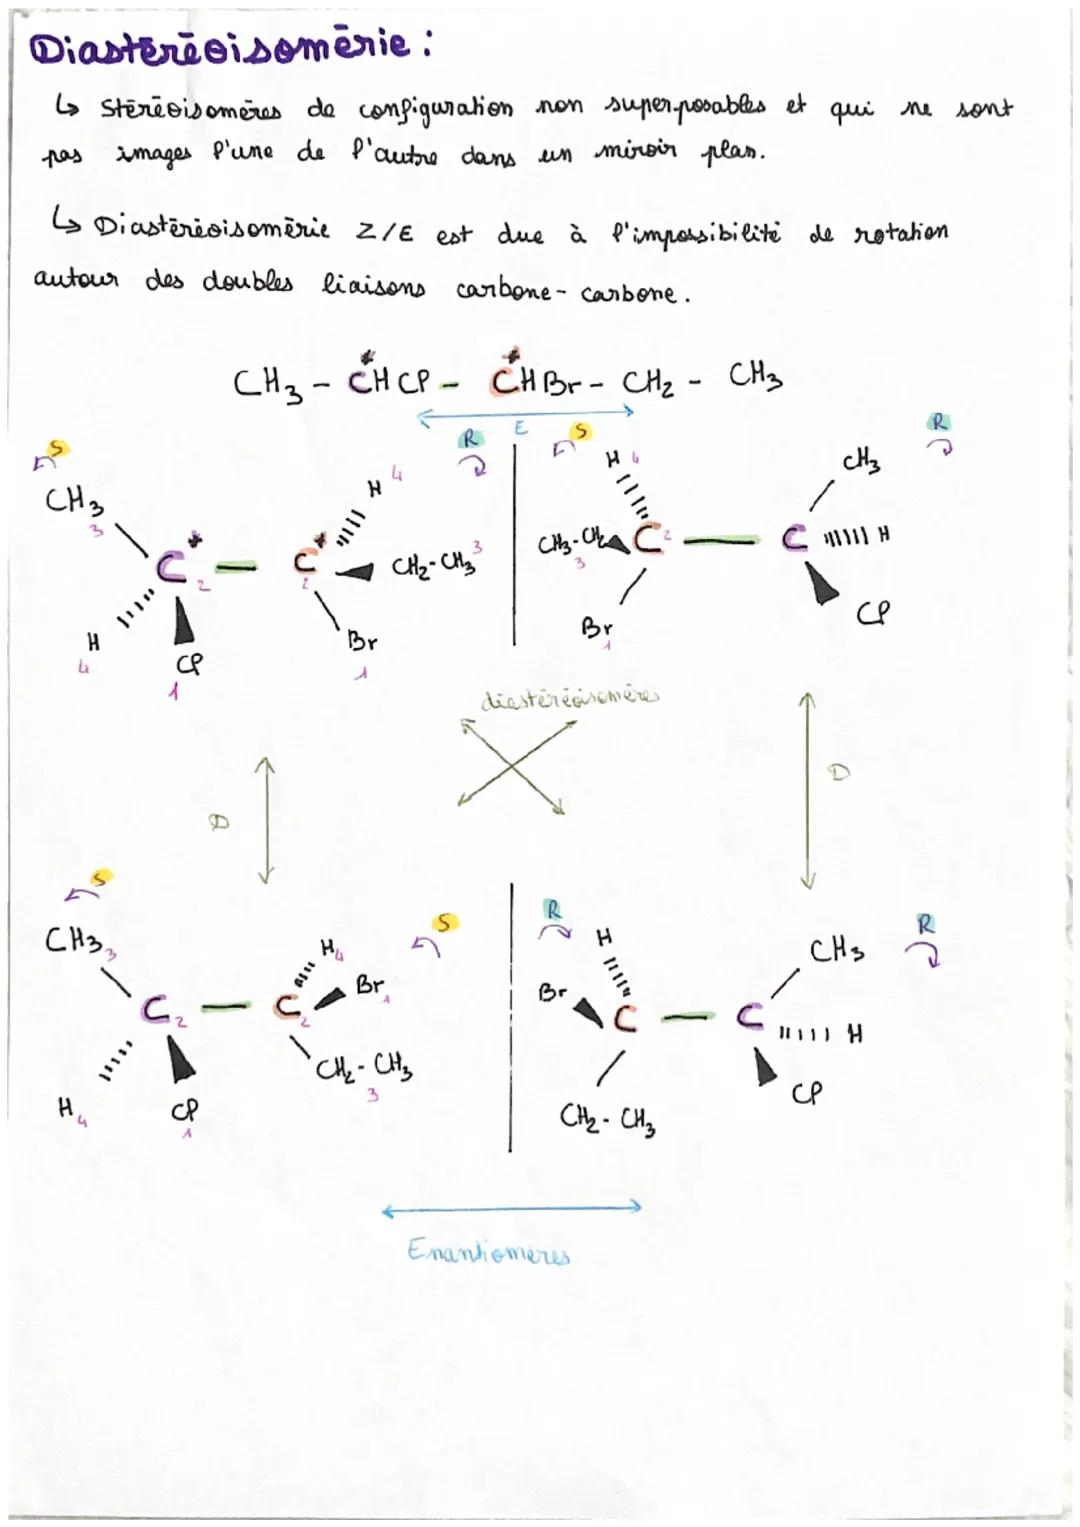 Diastéréoisomérie :
↳ Stéréoisomères de configuration non superposables et qui ne sont
pas images l'une de l'autre dans un miroir plan.
↳ Diastéréoisomérie Z/E est due à l'impossibilité de rotation
autour des doubles liaisons carbone-carbone.
CH3 - C*HCl - C*HBr - CH2 - CH3
E
S R S R
CH3 3 H 4 H 4 CH3
C* 2 C* 2 CH2-CH3 3 CH3-CH2 3 C 2 C H
H 4 Cl 1 Br 1 Br 1 Cl
diastéréoisomères
D D
S S R R
CH3 3 H4 Br 1 H Br CH3
C 2 C 2 CH2-CH3 3 C C H
H 4 Cl 1 CH2-CH3 Cl
Enantiomères